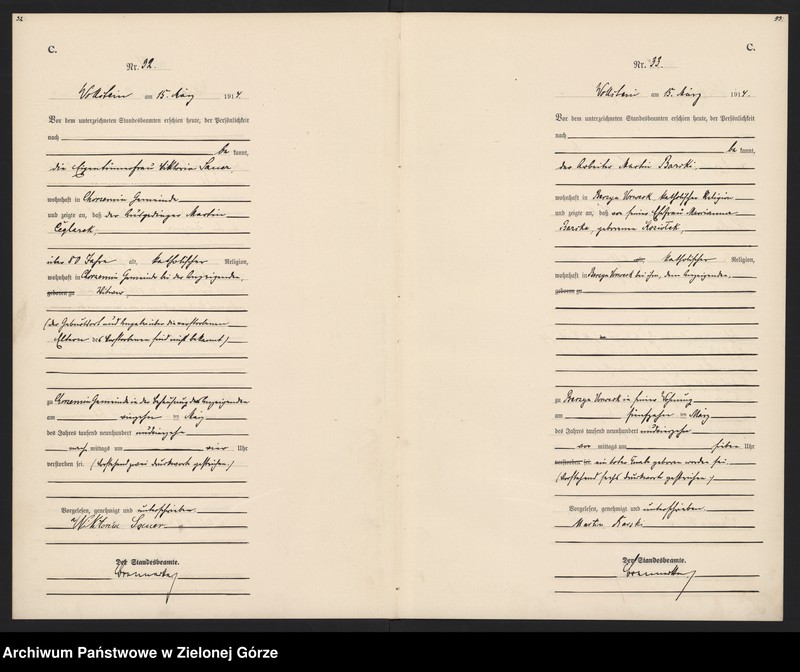 32
C.
Nr. 32.
Wollstein am 15. März 1914.
Vor dem unterzeichneten Standesbeamten erschien heute, der Persönlichkeit
nach
be kannt,
die Eigentümerfrau Viktoria Sauer,
wohnhaft in Chorzemin Gemeinde
und zeigte an, daß der Martin
Ceglarek,
über 80 Jahre alt, katholischer Religion,
wohnhaft in Chorzemin Gemeinde bei der Anzeigenden,
geboren zu Witwer,
(der Geburtsort und Angaben über die verstorbenen
Eltern des Verstorbenen sind nicht bekannt)
zu Chorzemin Gemeinde in der Behausung der Anzeigenden
am vierzehn ten März
des Jahres tausend neunhundert undvierzehn
nach mittags um vier Uhr
verstorben sei. (Vorstehend zwei Druckworte gestrichen.)
Vorgelesen, genehmigt und unterschrieben.
Wiktoria Sauer
Der Standesbeamte.
33.
C.
Nr. 33.
Wollstein am 15. März 1914.
Vor dem unterzeichneten Standesbeamten erschien heute, der Persönlichkeit
nach
be kannt,
der Arbeiter Martin Barski,
wohnhaft in Vorwerk, katholischer Religion
und zeigte an, daß von seiner Ehefrau Marianna
Barska, geborene Koziolek,
alt, katholischer Religion,
wohnhaft in Vorwerk bei ihm, dem Anzeigenden,
geboren zu
zu Vorwerk in seiner Wohnung
am fünfzehn ten März
des Jahres tausend neunhundert undvierzehn
vor mittags um sieben Uhr
verstorben sei. ein totes Kind geboren worden sei.
(Vorstehend sechs Druckworte gestrichen.)
Vorgelesen, genehmigt und unterschrieben.
Martin Barski
Der Standesbeamte.
Archiwum Państwowe w Zielonej Górze